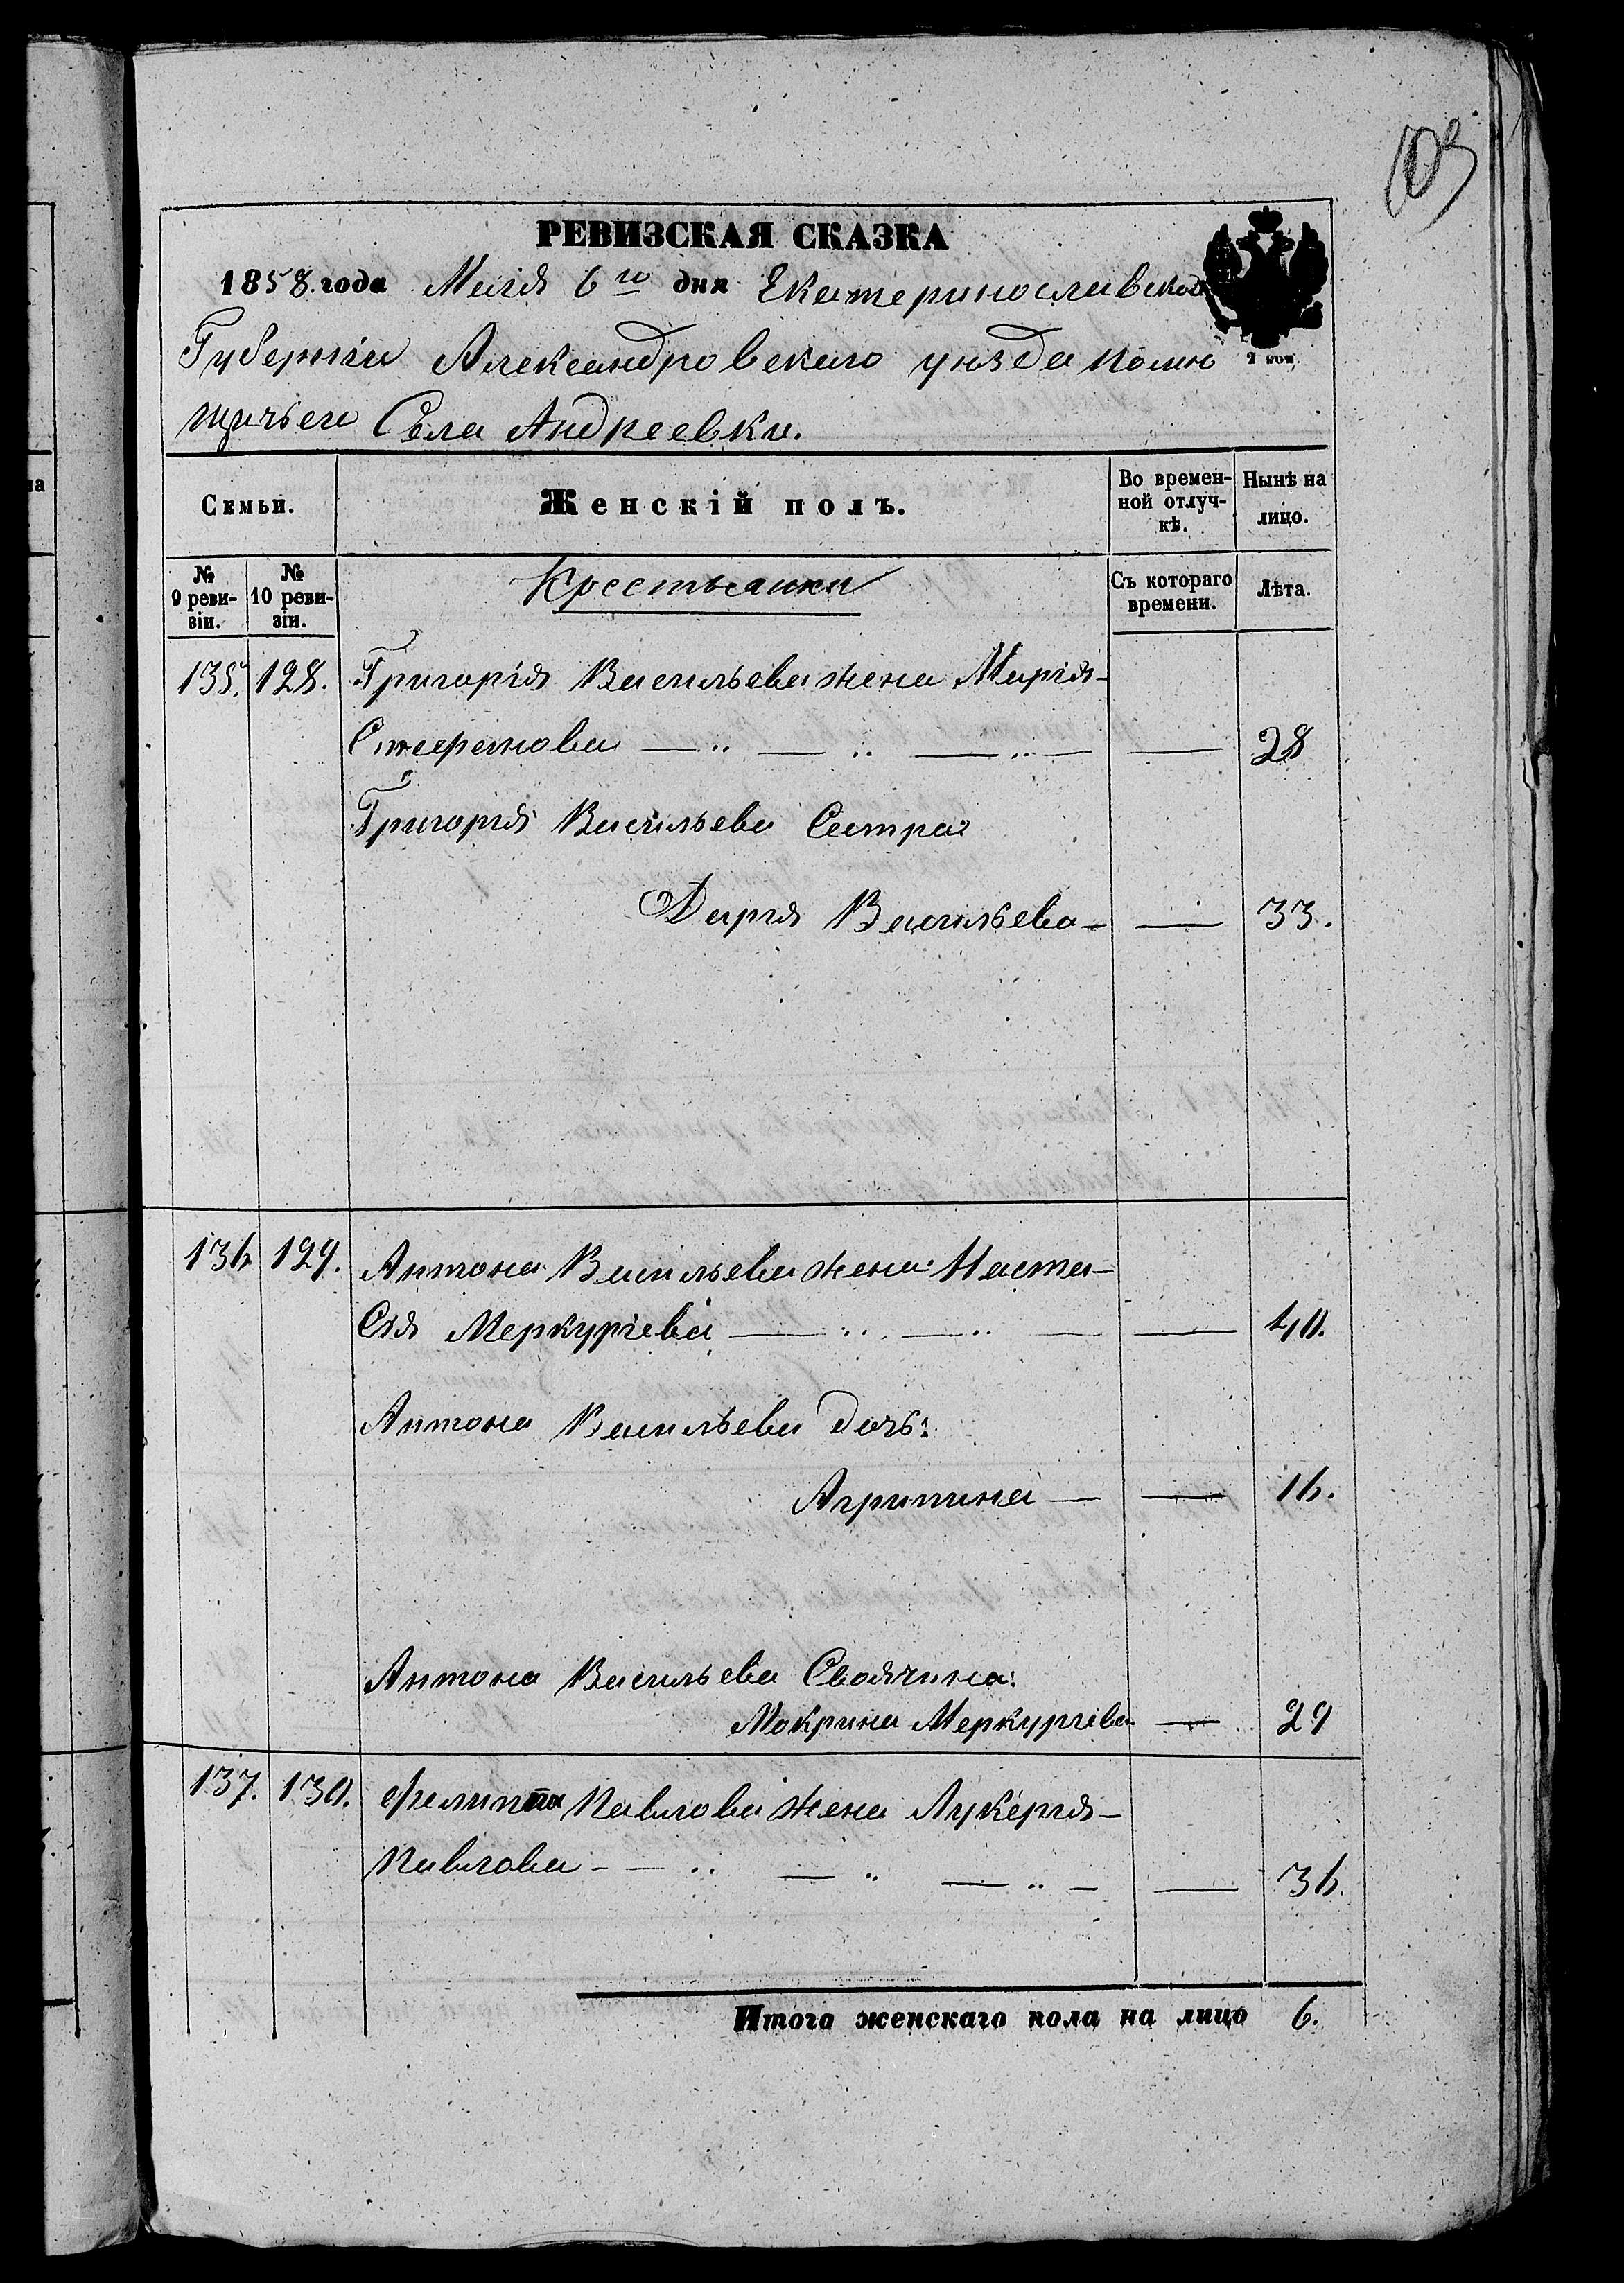 103
РЕВИЗСКАЯ СКАЗКА
1858. года Маія 6го дня Екатеринославской
Губерніи Александровскаго уѣзда помѣ
щичьего Села Андреевки.
2 коп.
на
Семьи.
Женскій полъ.
Во времен-
ной отлуч-
кѣ.
Нынѣ на
лицо.
№
9 реви-
зіи.
№
10 реви-
зіи.
Крестьянки
Съ котораго
времени.
Лѣта.
135. 128. Григорія Васильева жена Марія-
Стеефанова — „ — „ — „ — — 28
Григорія Васильева Сестра
Дарія Васильева- — 33.
136 129. Антона Васильева жена: Наста-
Сія Меркуріева — „ — „ — — 40.
Антона Васильева дочь:
Агрипина — — 16.
Антона Васильева Своячина:
Мокрина Меркуріева — 29
137. 130. Филиппа Павлова жена Лукерія-
Павлова - — „ — „ — „ - — 36.
Итого женскаго пола на лицо 6.